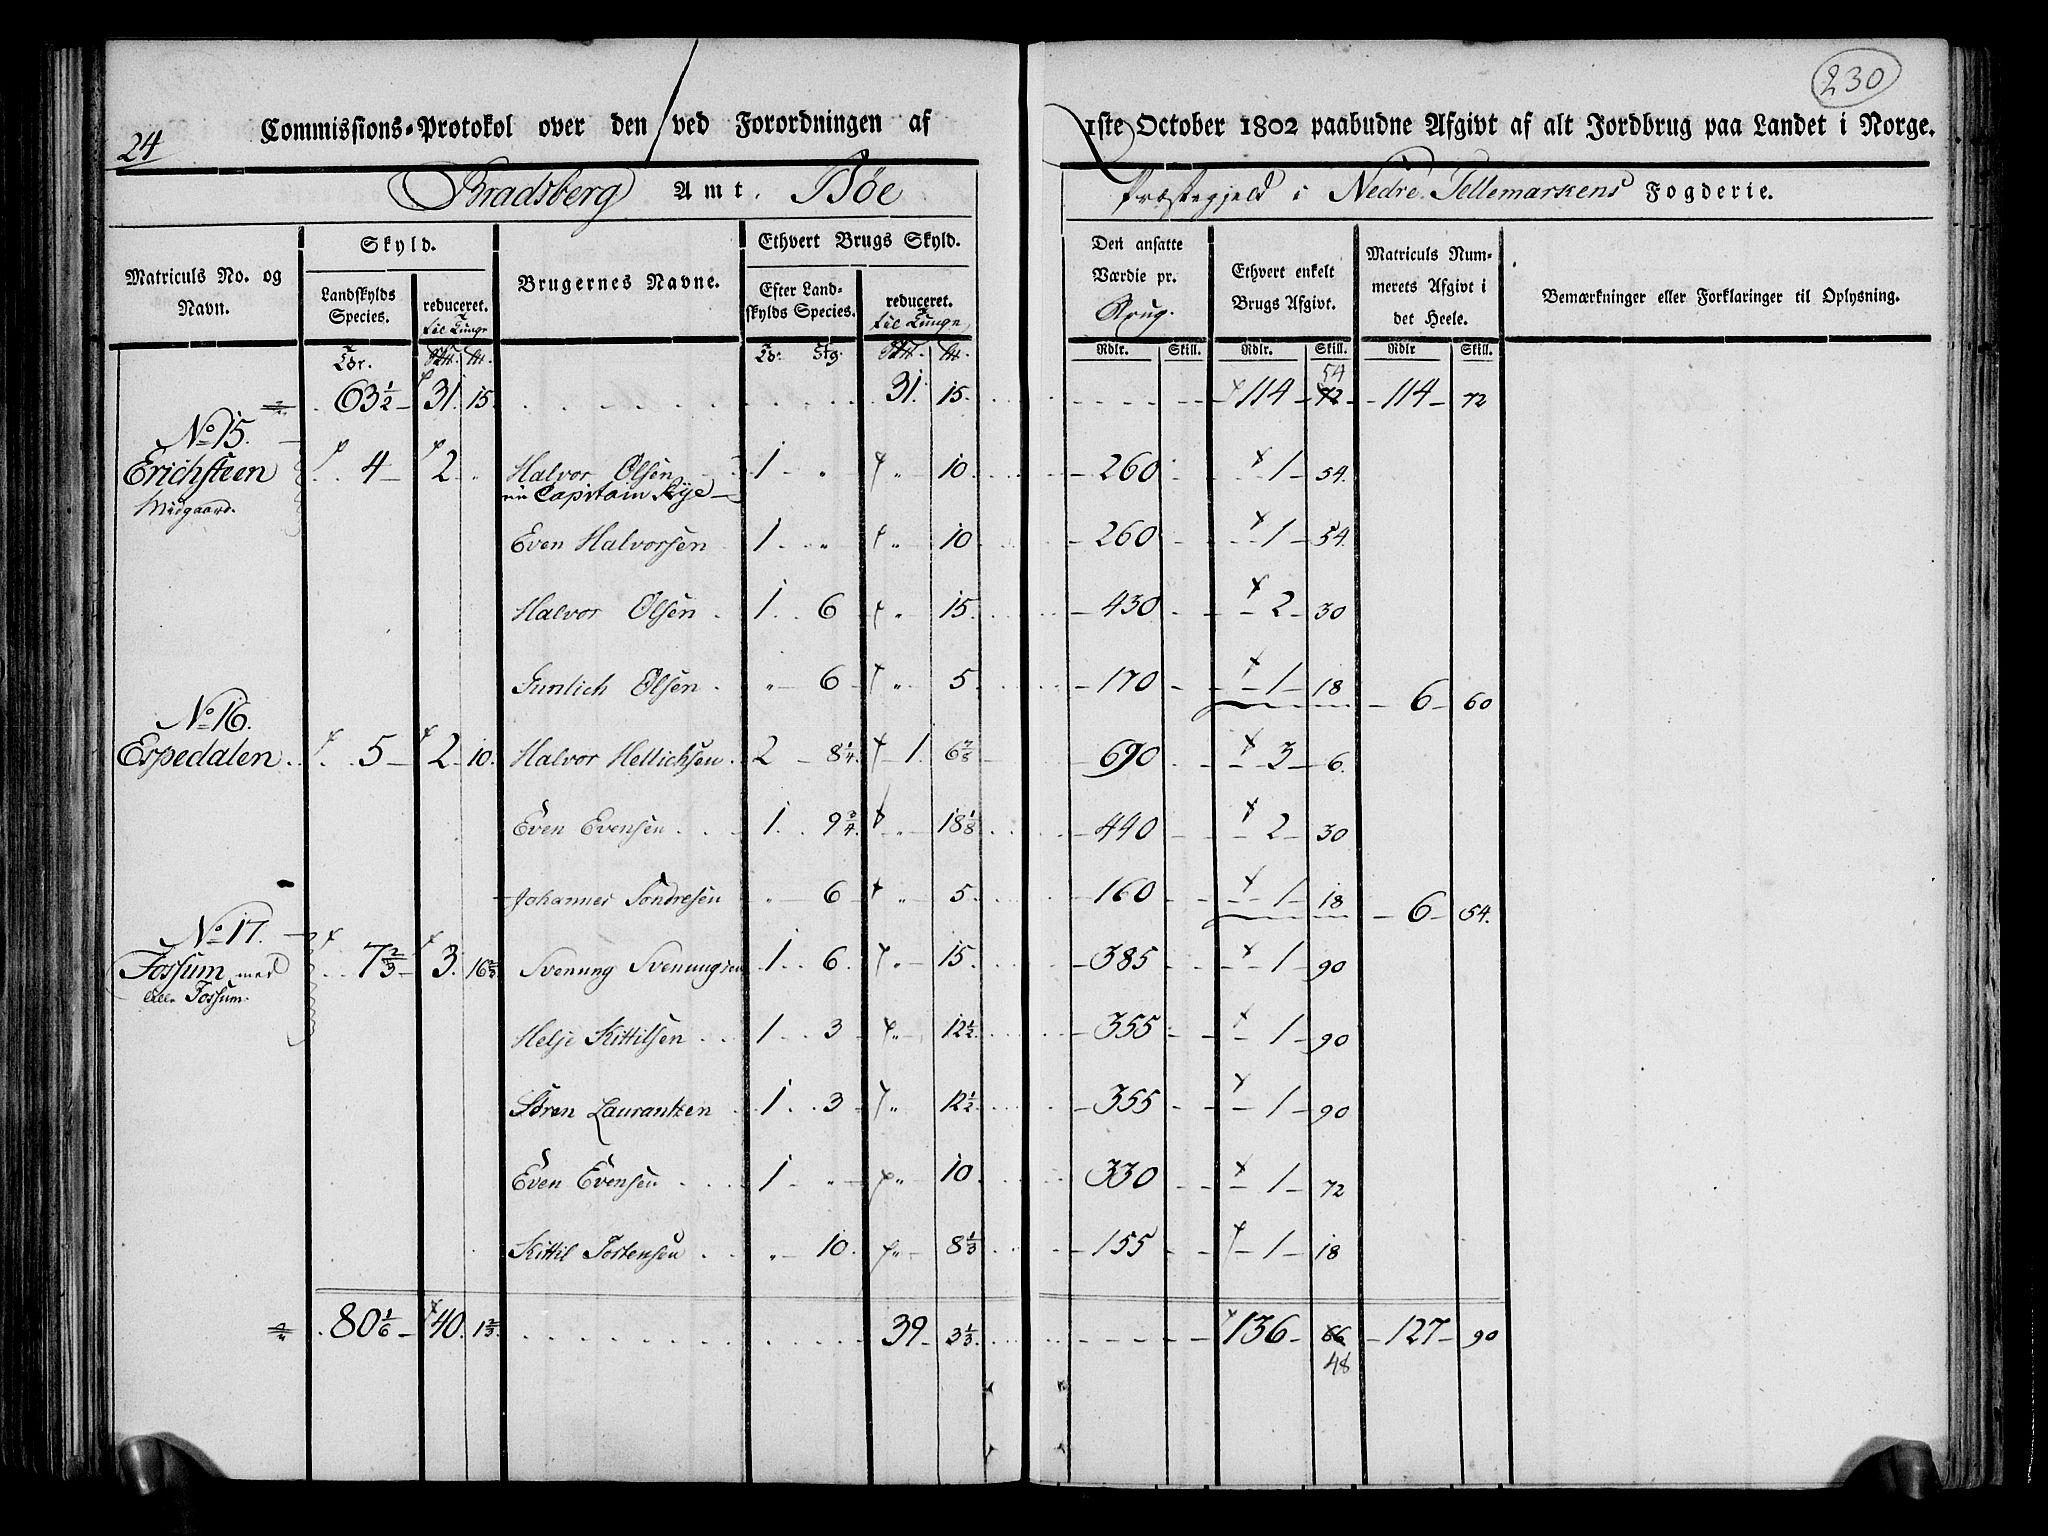 230
24 Commissions-Protokol over den ved Forordningen af 1ste October 1802 paabudne Afgivt af alt Jordbrug paa Landet i Norge.
Bradsberg Amt. Bøe Præstegjeld i Nedre Tellemarkens Fogderie.
Matriculs No. og Navn.
Skyld.
Landskylds Species.
reduceret. til Tunge
Brugernes Navne.
Ethvert Brugs Skyld.
Efter Landskylds Species.
reduceret. til Tunge
Den ansatte Værdie pr. Brug.
Ethvert enkelt Brugs Afgivt.
Matriculs Nummerets Afgivt i det Heele.
Bemærkninger eller Forklaringer til Oplysning.
Rdlr. Skill. Rdlr. Skill. Rdlr Skill.
54
63 1/2 31. 15. 31. 15. 114 72 114 72
No 15.
Erichsteen 4 2 Halvor Olsen 1 " " 10 260 1 54.
Midgaard. nu Capitain Rye
Even Halvorsen 1 " " 10 260 1 54.
Halvor Olsen 1 6 " 15 430 2 30
Gunlich Olsen " 6 " 5 170 1 18 6 60
No 16.
Espedalen 5 2 10. Halvor Hellichsen 2 8 1/4 1. 6 7/8 690 3 6.
Even Evensen 1. 9 3/4 " 18 1/8 440 2 30
Johannes Sondresen " 6 " 5 160 1 18 6 54.
No 17.
Fossum med 7 2/3 3. 16 2/3 Svenung Svenungsen 1 6. " 15 385 1 90
lille Fossum.
Helje Kittilsen 1 3 " 12 1/2 355 1 90
Sören Laurantzen 1 3 " 12 1/2 355 1 90
Even Evensen 1 " " 10 330 1 72
Kittil Tostensen " 10. " 8 1/3 155 1 18
80 1/6 40. 1 2/3 39 3 1/3 136 66 127 90
48